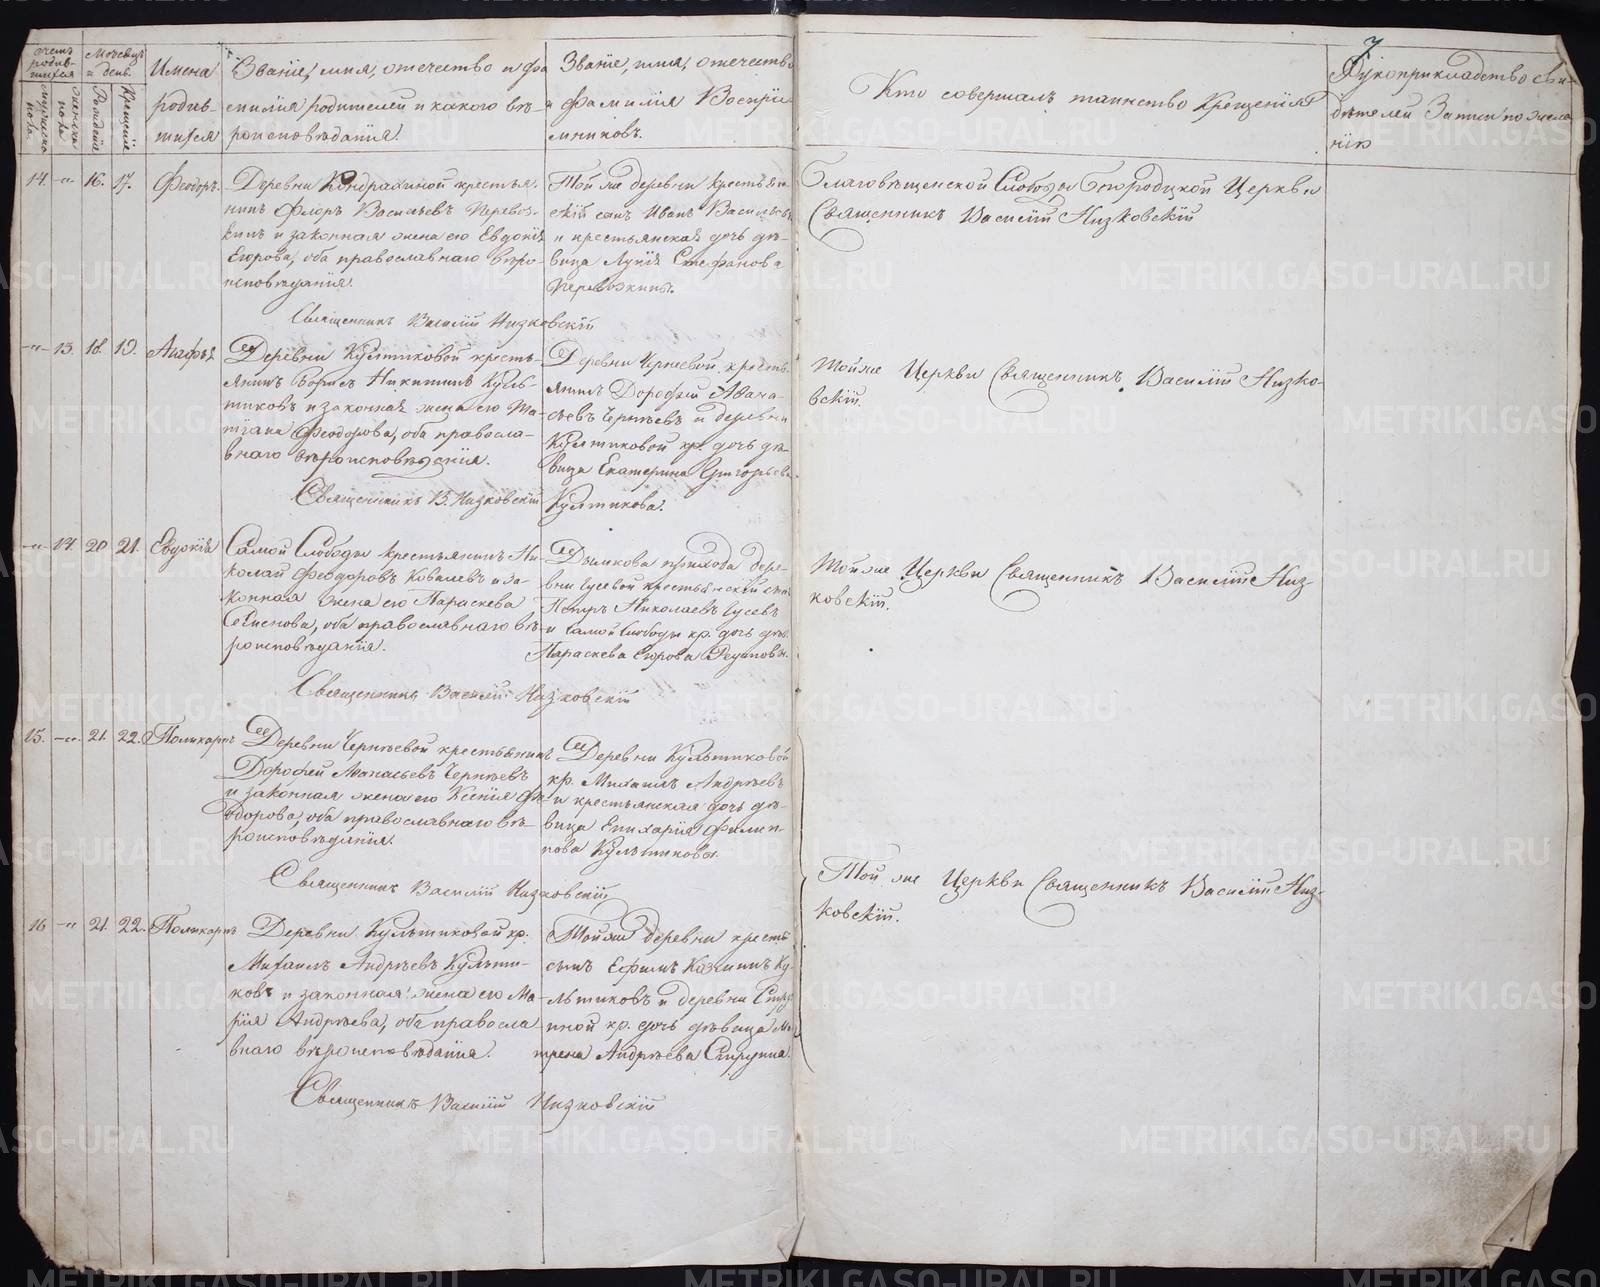 7
Счетъ родив-
шихся
мужеска
пола
женска
пола
Мѣсяцъ
и день.
Рожденіе
Крещеніе
Имена
родив-
шихся
Званіе, имя, отечество и фа
милія родителей и какого вѣ-
роисповѣданія.
Званіе, имя, отечество
и фамилія Воспріи
мниковъ.
Кто совершалъ таинство Крещенія
Рукоприкладство сви-
дѣтелей Записи по жела
нію
14. -„- 16. 17. Феодоръ.
Деревни Кондрахиной крестья-
нинъ Флоръ Васильевъ Перевоз-
кинъ и законная жена его Евдокія
Егорова, оба православнаго вѣро-
исповѣданія.
Священникъ Василій Низковскій
Той же деревни крестьян
скій сынъ Иванъ Васильевъ
и крестьянская дочь дѣ-
вица Лукія Стефанова
Перевозкины.
Благовѣщенской Слободы Богородицкой Церкви
Священникъ Василій Низковскій
-„- 13. 18. 19. Агафія
Деревни Култиковой кресть-
янинъ Борисъ Никитинъ Куль-
тиковъ и законная жена его Та-
тіана Феодорова, оба правосла-
внаго вѣроисповѣданія.
Священникъ В. Низковскій
Деревни Чернѣевой крестья-
янинъ Дорофей Афана-
сьевъ Чернѣевъ и деревни
Култиковой кр. дочь дѣ-
вица Екатерина Григорьева
Култикова.
Той же Церкви Священникъ Василій Низко-
вскій.
-„- 14. 20 21. Евдокія
Самой Слободы крестьянинъ Ни-
колай Феодоровъ Ковалевъ и за-
конная жена его Параскева
Семенова, оба православнаго вѣ-
роисповѣданія.
Священникъ Василій Низковскій
Дымкова прихода дере-
вни Гусевой крестьянскій сынъ
Петръ Николаевъ Гусевъ
и Самой Слободы кр. дочь дѣв.
Параскева Егорова
Той же Церкви Священникъ Василій Низ-
ковскій.
15. -„- 21. 22. Поликарпъ
Деревни Чернѣевой крестьянинъ
Дорофей Афанасьевъ Чернѣевъ
и законная жена его Ксенія Фе-
одорова, оба православнаго вѣ-
роисповѣданія.
Священникъ Василій Низковскій
Деревни Культиковой
кр. Михаилъ Андрѣевъ
и крестьянская дочь дѣ-
вица Епихарія Филип-
пова Культиковы.
Той же Церкви Священникъ Василій Низ-
ковскій.
16 -„- 21. 22. Поликарпъ
Деревни Культиковой кр.
Михаилъ Андрѣевъ Культи-
ковъ и законная жена его Ма-
рія Андрѣева, оба правосла
внаго вѣроисповѣданія.
Священникъ Василій Низковскій
Той же деревни кресть
сынъ Ефимъ Ку-
льтиковъ и деревни Стру
ниной кр. дочь дѣвица Ма
трена Андрѣева Струнина.
METRIKI.GASO-URAL.RU